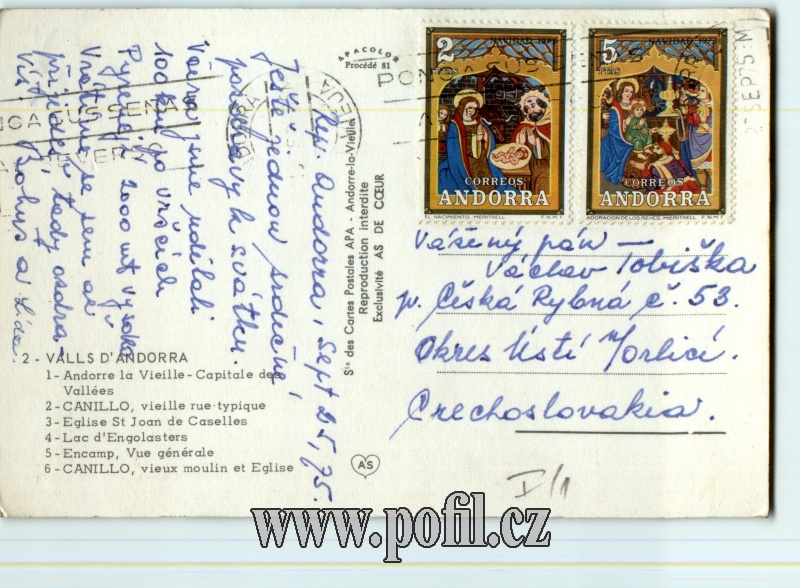 APACOLOR
Procédé 81
2
NAVIDAD 1973
PTAS
CORREOS
ANDORRA
EL NACIMIENTO. MERITXELL F.N.M.T.
5
NAVIDAD 1973
PTAS
CORREOS
ANDORRA
ADORACION DE LOS REYES. MERITXELL F.N.M.T.
SEP 75
Rep. Andorra, Sept 25, 75.
Ještě jednou srdečné
pozdravy k svátku.
Včera jsme udělali
100 km po vršcích
Pyrenejí 2000 mt vysoko
Vrátíme se sem až
příjdeš, tedy ozdrav
Vít Bohuš a Lída.
Sté des Cartes Postales APA - Andorre-la-Vieille
Reproduction interdite
Exclusivité AS DE CŒUR
Vážený pán
Václav Tobiška
p. Česká Rybná č. 53.
Okres Ústí /Orlicí.
Czechoslovakia.
2 - VALLS D'ANDORRA
1 - Andorre la Vieille - Capitale des
Vallées
2 - CANILLO, vieille rue typique
3 - Eglise St Joan de Caselles
4 - Lac d'Engolasters
5 - Encamp, Vue générale
6 - CANILLO, vieux moulin et Eglise
AS
I/1
www.pofil.cz